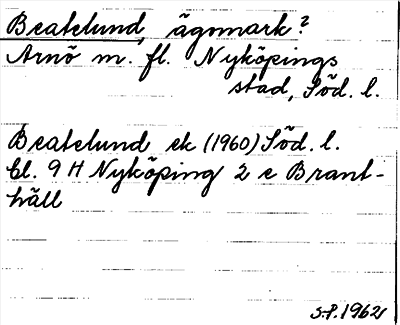 Beatelund, ägnmark?
Arnö m. fl. Nyköpings
stad, Söd. l.
Beatelund ek (1960) Söd. l.
bl. 9 H Nyköping 2 c Brant-
häll
S.P. 1962